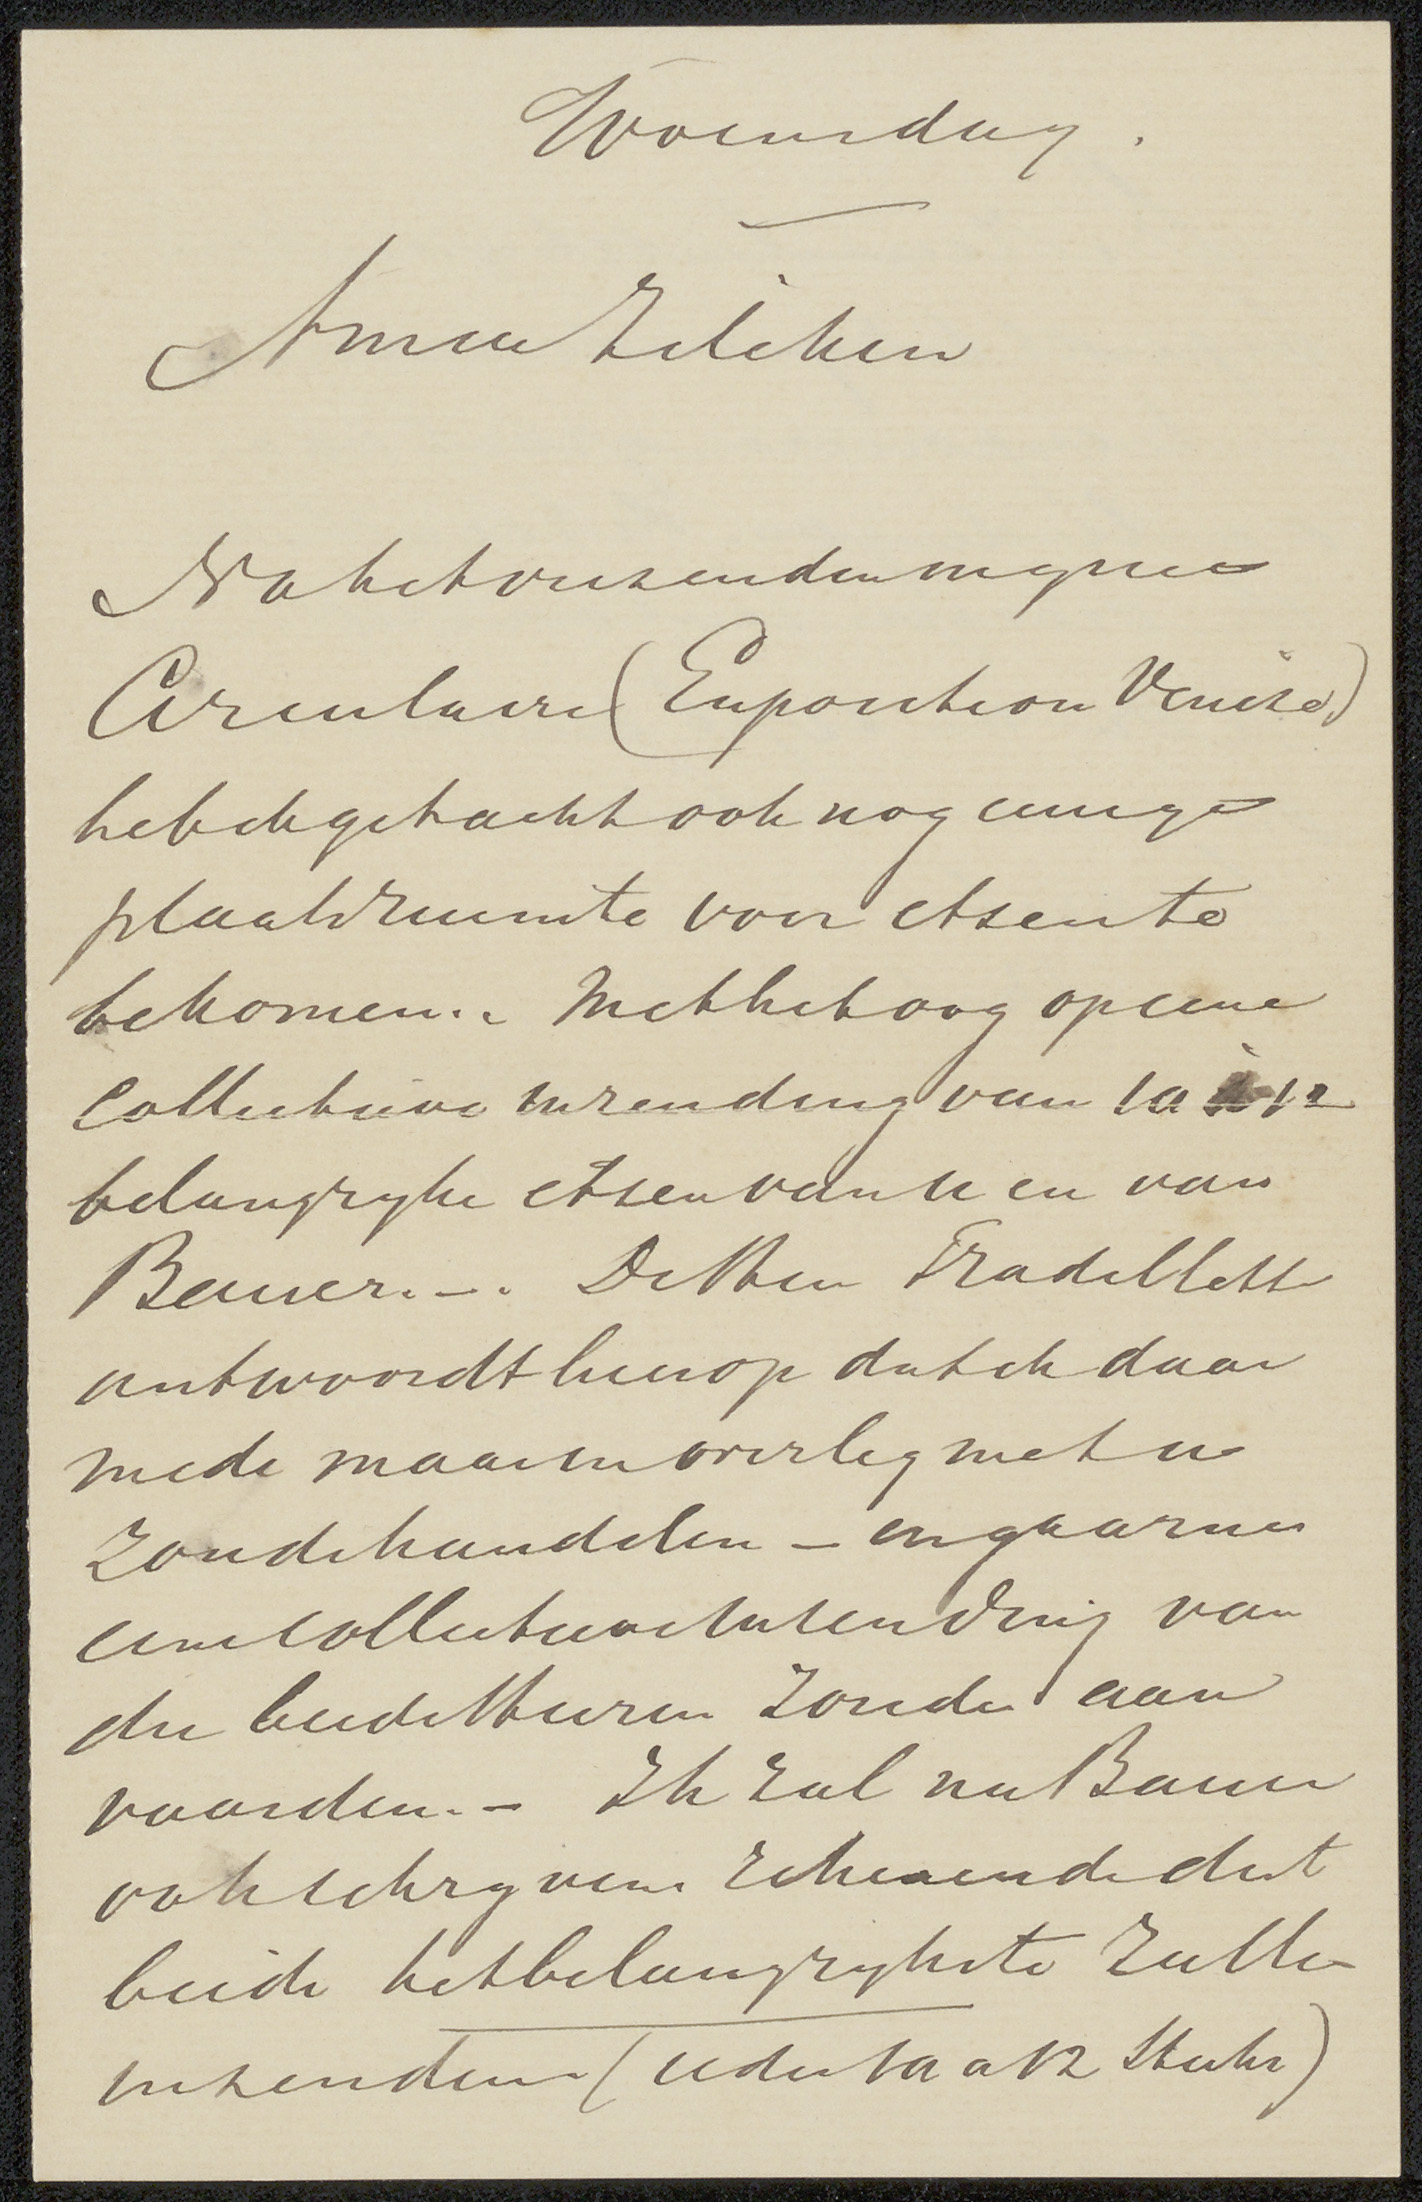 Woensdag.
Amice Zilcken
Na het verzenden mijner
Circulaire (Exposition Venise)
heb ik getracht ook nog eenige
plaatsruimte voor etsen te
bekomen.. Met het oog op eene
Collectieve inzending van 10 à 12
belangryke etsen van U en van
Bauer.-. De Heer Fradeletto
antwoordt hierop dat ik daar
mede maar in overleg met U
zoude handelen – en gaarne
eene collectieve inzending van
die beide Heeren zoude aan
vaarden.- Ik zal nu Bauer
ook schryven rekenende dat
beide het belangrykste zulle
inzenden (ieder 10 a 12 Stuks)